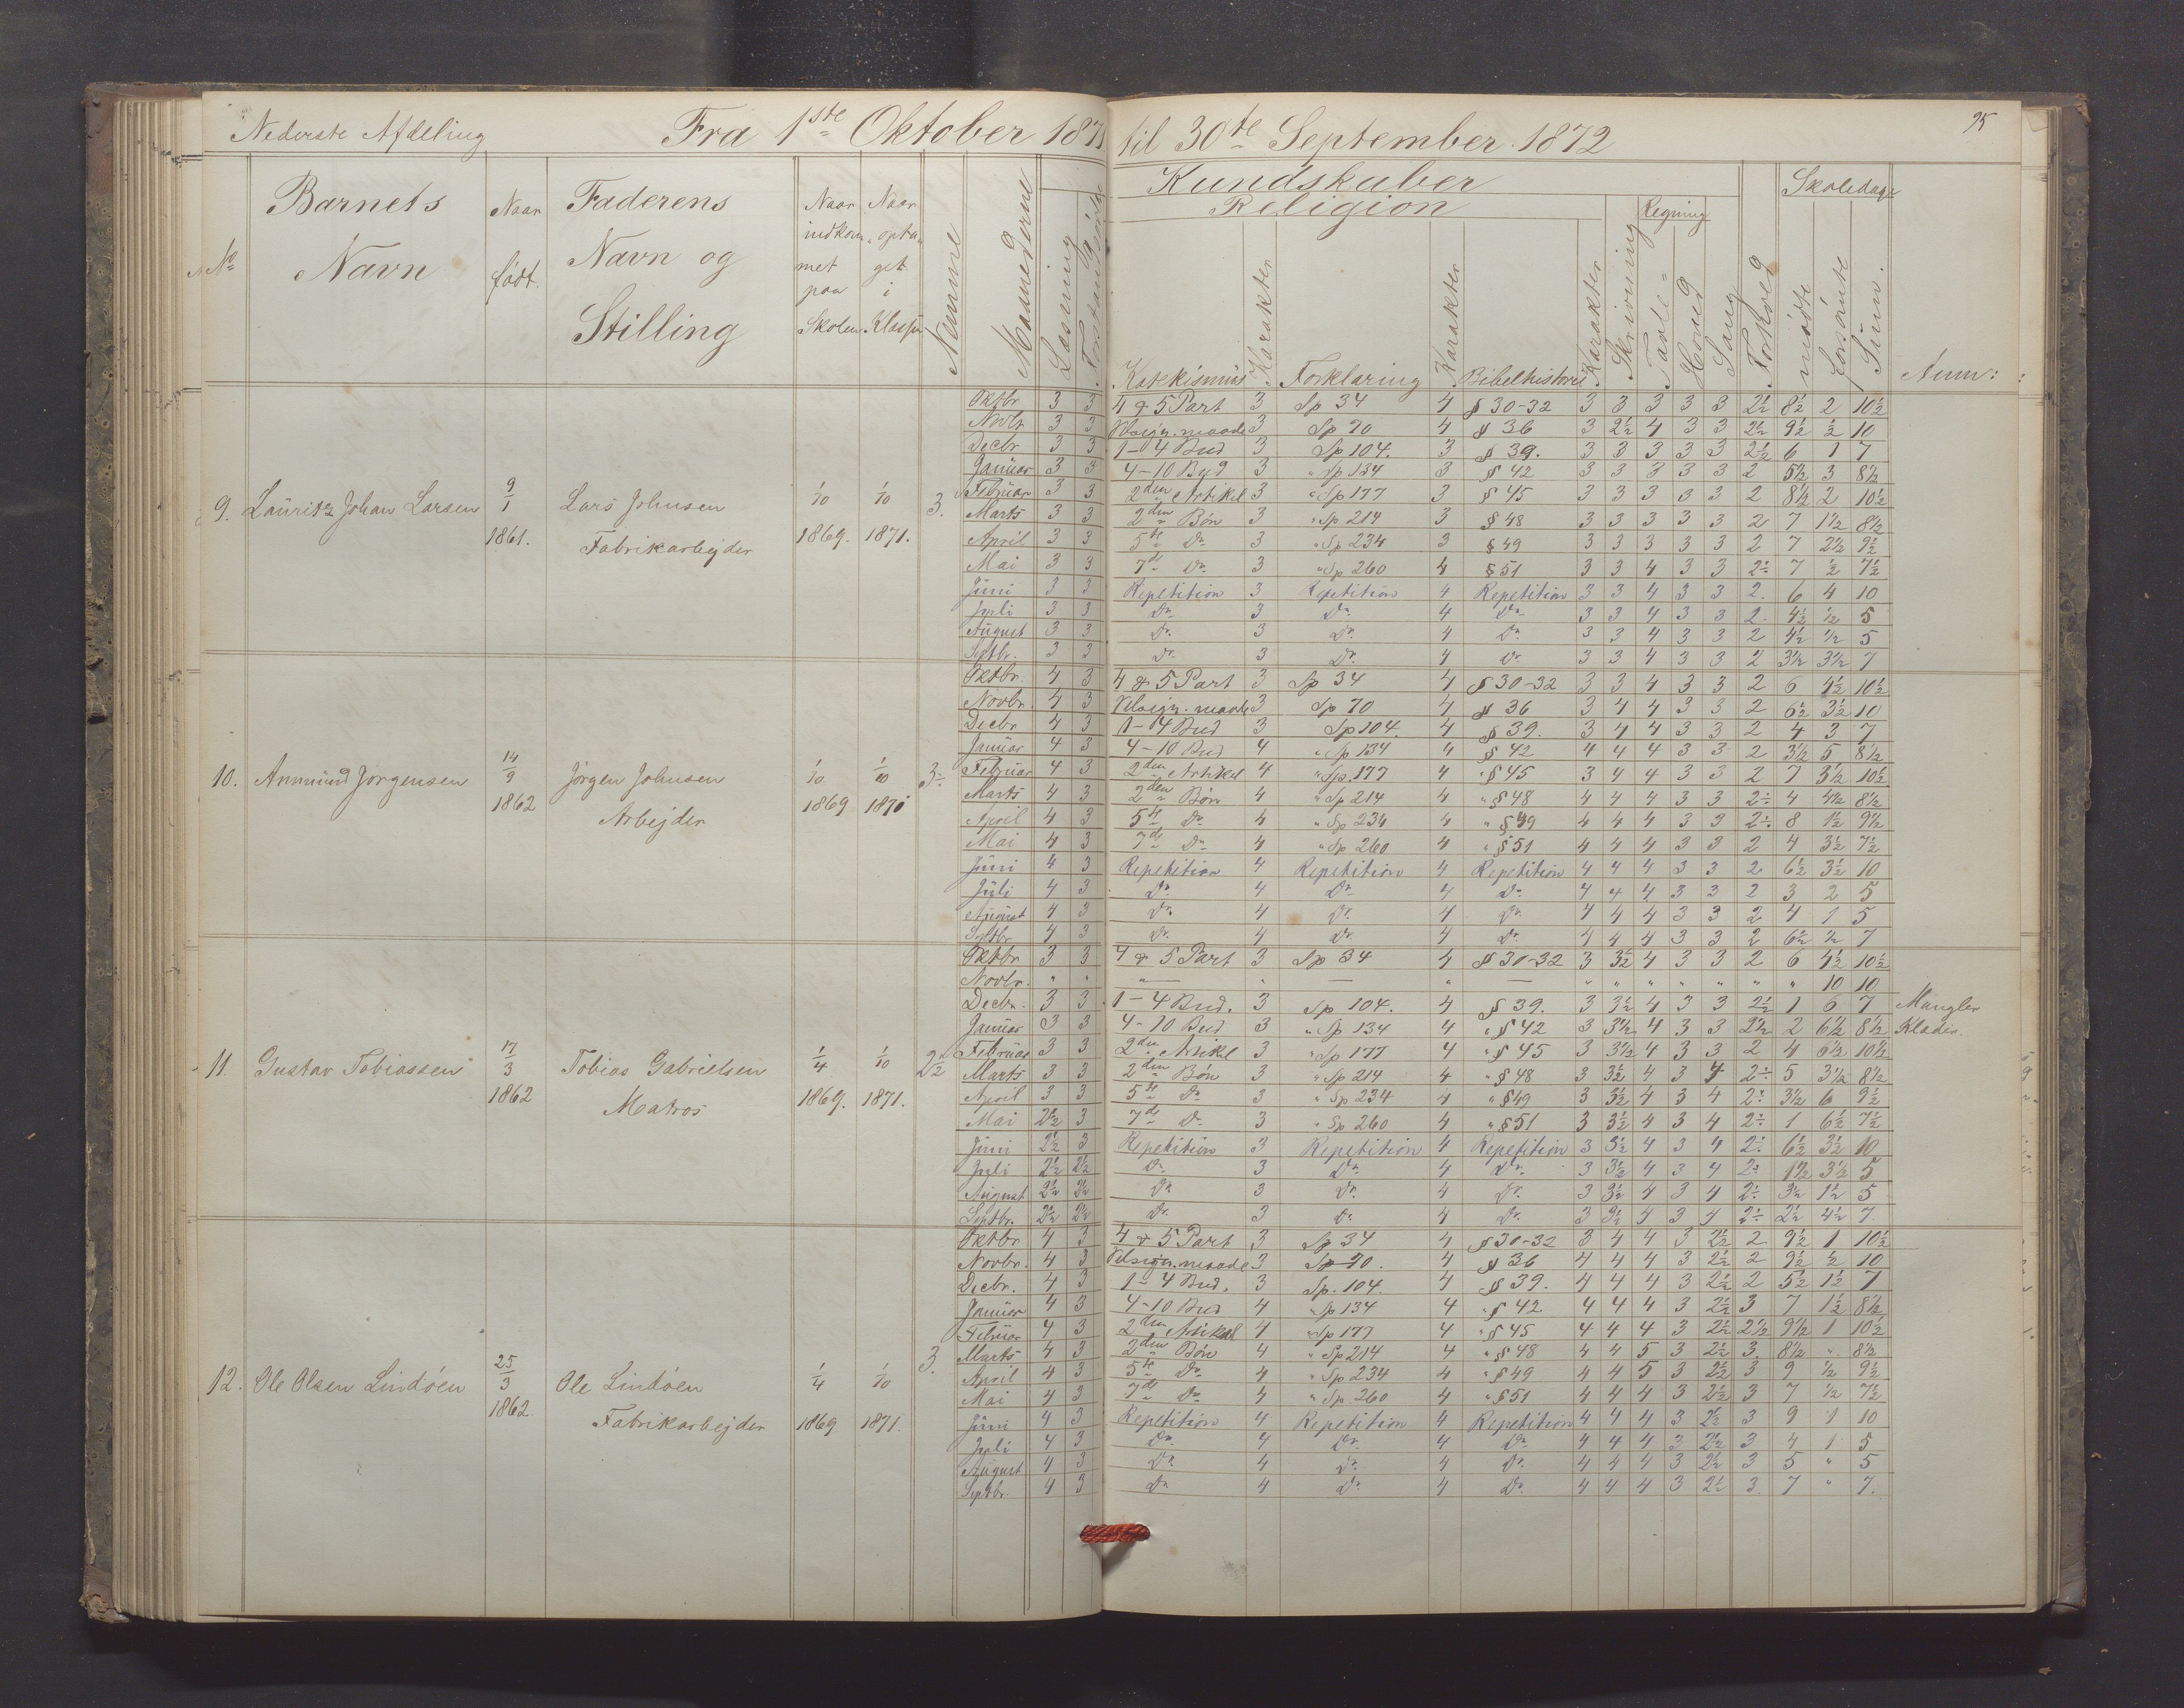 Nederste Afdeling Fra 1ste Oktober 1871 til 30te September 1872 95
No Barnets Navn Naar født. Faderens Navn og Stilling Naar indkommet paa Skolen Naar optaget i Klassen Nemme Maanederne Læsning Forstandsøvelse Kundskaber Religion Katekismus Karakter Forklaring Karakter Bibelhistorie Karakter Skrivning Regning Tavle= Hoved Sang Forhold Skoledage mødte forsømte Sum. Anm:
9. Lauritz Johan Larsen 9/1 1861. Lars Johnsen Fabrikarbejder 1/10 1869. 1/10 1871. 3.
Oktbr 3 3 4 & 5 Part 3 Sp 34 4 § 30-32 3 3 3 3 3 2½ 8½ 2 10½
Novbr 3 3 Velsign. maade 3 Sp 70 4 § 36 3 2½ 4 3 3 2½ 9½ ½ 10
Decbr 3 3 1-4 Bud 3 Sp 104. 3 § 39. 3 3 3 3 3 2½ 6 1 7
Januar 3 3 4-10 Bud 3 " Sp 134 3 § 42 3 3 3 3 3 2 5½ 3 8½
Februar 3 3 2den Artikel 3 " Sp 177 3 § 45 3 3 3 3 3 2 8½ 2 10½
Marts 3 3 2den Bøn 3 " Sp 214 3 § 48 3 3 3 3 3 2 7 1½ 8½
April 3 3 5te Do 3 " Sp 234 3 § 49 3 3 3 3 3 2 7 2½ 9½
Mai 3 3 7de Do 3 " Sp 260 4 § 51 3 3 4 3 3 2÷ 7 ½ 7½
Juni 3 3 Repetition 3 Repetition 4 Repetition 3 3 4 3 3 2. 6 4 10
Juli 3 3 Do 3 Do 4 Do 3 3 4 3 3 2. 4½ ½ 5
August 3 3 Do 3 Do 4 Do 3 3 4 3 3 2 4½ ½ 5
Septbr. 3 3 Do 3 Do 4 Do 3 3 4 3 3 2 3½ 3½ 7
10. Anmund Jørgensen 14/9 1862 Jørgen Johnsen Arbejder 1/10 1869 1/10 1870 3÷
Oktbr. 4 3 4 & 5 Part 3 Sp 34 4 § 30-32 3 3 4 3 3 2 6 4½ 10½
Novbr. 4 3 Velsign. maade 3 Sp 70 4 § 36 3 4 4 3 3 2 6½ 3½ 10
Decbr 4 3 1-4 Bud 3 Sp 104. 4 § 39. 3 4 4 3 3 2 4 3 7
Januar 4 3 4-10 Bud 4 " Sp 134 4 § 42 4 4 4 3 3 2 3½ 5 8½
Februar 4 3 2den Artikel 4 " Sp. 177 4 " § 45 3 4 4 3 3 2 7 3½ 10½
Marts 4 3 2den Bøn 4 " Sp 214 4 " § 48 4 4 4 3 3 2÷ 4 4½ 8½
April 4 3 5te Do 4 " Sp 234 4 " § 49 4 4 4 3 3 2÷ 8 1½ 9½
Mai 4 3 7de Do 4 " Sp 260 4 " § 51 4 4 4 3 3 2 4 3½ 7½
Juni 4 3 Repetition 4 Repetition 4 Repetition 4 4 4 3 3 2 6½ 3½ 10
Juli 4 3 Do 4 Do 4 Do 4 4 4 3 3 2 3 2 5
August 4 3 Do 4 Do 4 Do 4 4 4 3 3 2 4 1 5
Septbr 4 3 Do 4 Do 4 Do 4 4 4 3 3 2 6½ ½ 7
11. Gustav Tobiassen 17/3 1862 Tobias Gabrielsen Matros 1/4 1869. 1/10 1871. 2½
Oktbr 3 3 4 & 5 Part 3 Sp 34 4 § 30-32 3 3½ 4 3 3 2 6 4½ 10½
Novbr. " " " — " — " — " " " " " " " 10 10
Decbr. 3 3 1-4 Bud. 3 Sp 104. 4 § 39. 3 3½ 4 3 3 2½ 1 6 7 Mangler
Januar 3 3 4-10 Bud 3 " Sp 134 4 " § 42 3 3½ 4 3 3 2½ 2 6½ 8½ Klæder.
Februar 3 3 2den Artikel 3 " Sp 177 4 " § 45 3 3½ 4 3 3 2 4 6½ 10½
Marts 3 3 2den Bøn 3 " Sp 214 4 " § 48 3 3½ 4 3 4 2÷ 5 3½ 8½
April 3 3 5te Do 3 " Sp 234 4 " § 49 3 3½ 4 3 4 2÷ 3½ 6 9½
Mai 2½ 3 7de Do 3 " Sp 260 4 " § 51 3 3½ 4 3 4 2÷ 1 6½ 7½
Juni 2½ 3 Repetition 3 Repetition 4 Repetition 3 3½ 4 3 4 2÷ 6½ 3½ 10
Juli 2½ 2½ Do 3 Do 4 Do 3 3½ 4 3 4 2÷ 1½ 3½ 5
August 2½ 2½ Do 3 Do 4 Do 3 3½ 4 3 4 2÷ 3½ 1½ 5
Septbr. 2½ 2½ Do 3 Do 4 Do 3 3½ 4 3 4 2÷ 2½ 4½ 7
12. Ole Olsen Lindøen 25/3 1862. Ole Lindøen Fabrikarbejder 1/4 1869 1/10 1871. 3.
Oktbr 4 3 4 & 5 Part 3 Sp 34 4 § 30-32 3 4 4 3 2½ 2 9½ 1 10½
Novbr. 4 3 Velsign. maade 3 Sp 70. 4 § 36 4 4 4 3 2½ 2 9½ ½ 10
Decbr. 4 3 1-4 Bud. 3 Sp. 104. 4 § 39. 4 4 4 3 2½ 2 5½ 1½ 7
Januar 4 3 4-10 Bud 4 " Sp 134 4 " § 42 4 4 4 3 2½ 3 7 1½ 8½
Februar 4 3 2den Artikel 4 " Sp 177 4 " § 45 4 4 4 3 2½ 2½ 9½ 1 10½
Marts 4 3 2den Bøn 4 " Sp 214 4 " § 48 4 4 5 3 2½ 3 8½ " 8½
April 4 3 5te Do 4 " Sp 234 4 " § 49 4 4 5 3 2½ 3 9 ½ 9½
Mai 4 3 7de Do 4 " Sp 260 4 " § 51 4 4 4 3 2½ 3 7 ½ 7½
Juni 4 3 Repetition 4 Repetition 4 Repetition 4 4 4 3 2½ 3 9 1 10
Juli 4 3 Do 4 Do 4 Do 4 4 4 3 2½ 3 4 1 5
August 4 3 Do 4 Do 4 Do 4 4 4 3 2½ 3 5 " 5
Septbr. 4 3 Do 4 Do 4 Do 4 4 4 3 2½ 3. 7 " 7.